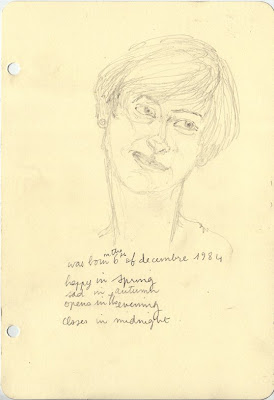 was born in the 6 of decembre 1984
happy in spring
sad in autumn
opens in the evening
closes in midnight